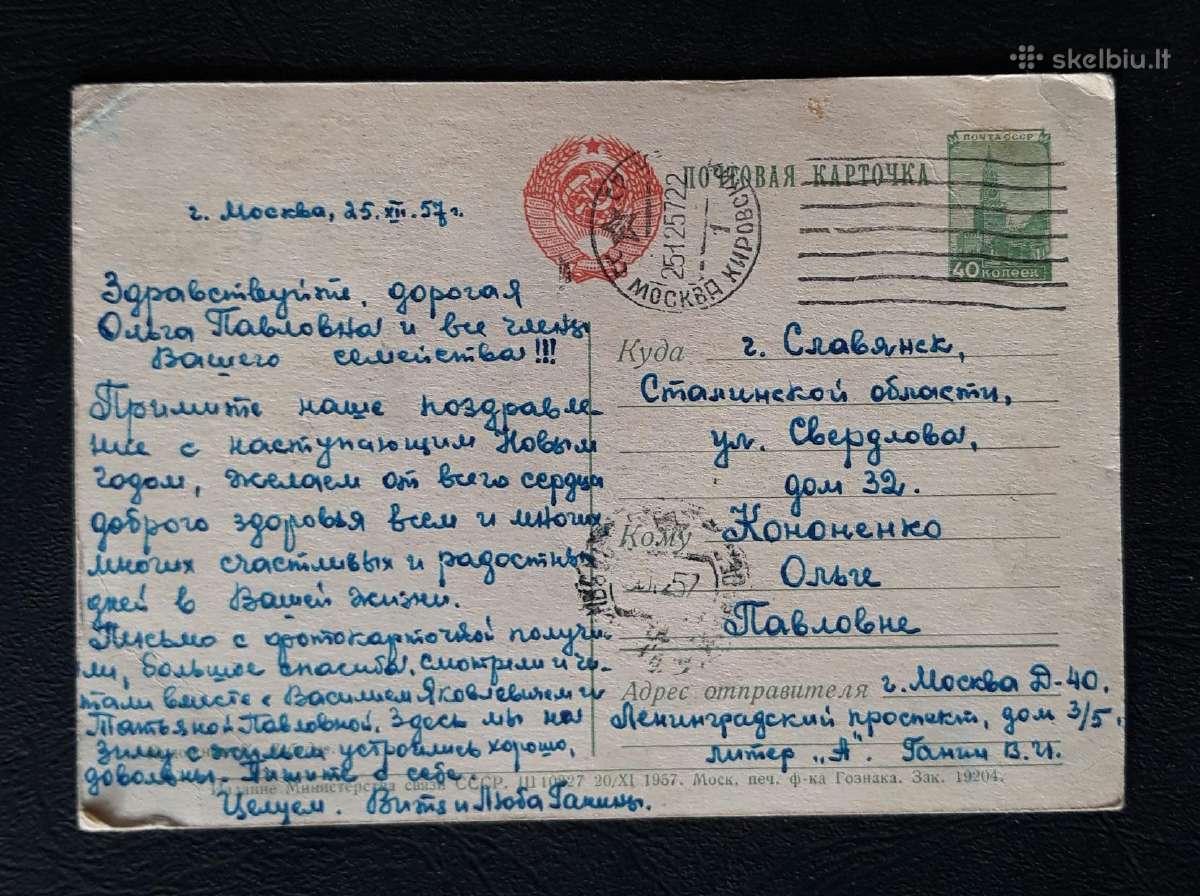 skelbiu.lt
ПОЧТА СССР
ПОЧТОВАЯ КАРТОЧКА
40 КОПЕЕК
МОСКВА КИРОВСК
25-12 57 22
1
г. Москва, 25.XII.57г.
Здравствуйте, дорогая
Ольга Павловна и все члены
Вашего семейства!!!
Примите наше поздравле-
ние с наступающим Новым
Годом, желаем от всего сердца
доброго здоровья всем и многих
многих счастливых и радостных
дней в Вашей жизни.
Письмо с фотокарточкой получи-
ли, большое спасибо. Смотрели и чи-
тали вместе с Василием Яковлевичем и
Татьяной Павловной. Здесь мы на
зиму с жильем устроились хорошо,
довольны. Пишите о себе.
Целуем. Витя и Люба Ганины.
Куда г. Славянск,
Сталинской области,
ул. Свердлова,
дом 32.
Кому Кононенко
Ольге
Павловне
57
Адрес отправителя г. Москва Д-40.
Ленинградский проспект, дом 3/5.
литер „А". Ганин В.И.
Издание Министерства связи СССР. Ш 10827 20/XI 1957. Моск. печ. ф-ка Гознака. Зак. 19204.